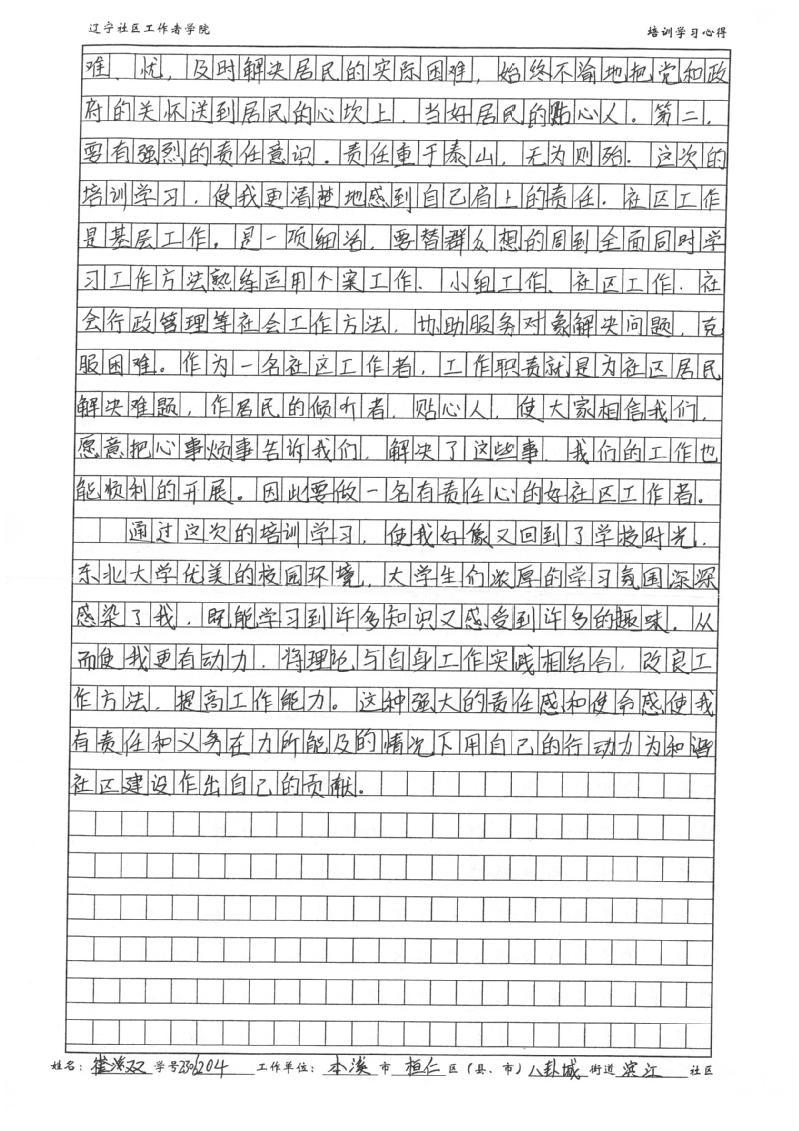 辽宁社区工作者学院 培训学习心得
难、忧，及时解决居民的实际困难，始终不渝地把党和政
府的关怀送到居民的心坎上，当好居民的贴心人。第二，
要有强烈的责任意识。责任重于泰山，无为则殆。这次的
培训学习，使我更清楚地感到自己肩上的责任。社区工作
是基层工作。是一项细活，要替群众想的周到全面同时学
习工作方法熟练运用个案工作、小组工作、社区工作、社
会行政管理等社会工作方法，协助服务对象解决问题，克
服困难。作为一名社区工作者，工作职责就是为社区居民
解决难题，作居民的倾听者，贴心人，使大家相信我们，
愿意把心事烦事告诉我们，解决了这些事，我们的工作也
能顺利的开展。因此要做一名有责任心的好社区工作者。
通过这次的培训学习，使我好像又回到了学校时光，
东北大学优美的校园环境，大学生们浓厚的学习氛围深深
感染了我，既能学习到许多知识又感受到许多的趣味。从
而使我更有动力，将理论与自身工作实践相结合，改良工
作方法，提高工作能力。这种强大的责任感和使命感使我
有责任和义务在力所能及的情况下用自己的行动力为和谐
社区建设作出自己的贡献。
姓名：崔 双 学号 204 工作单位：本溪 市 桓仁 区（县、市）八卦城 街道 滨江 社区